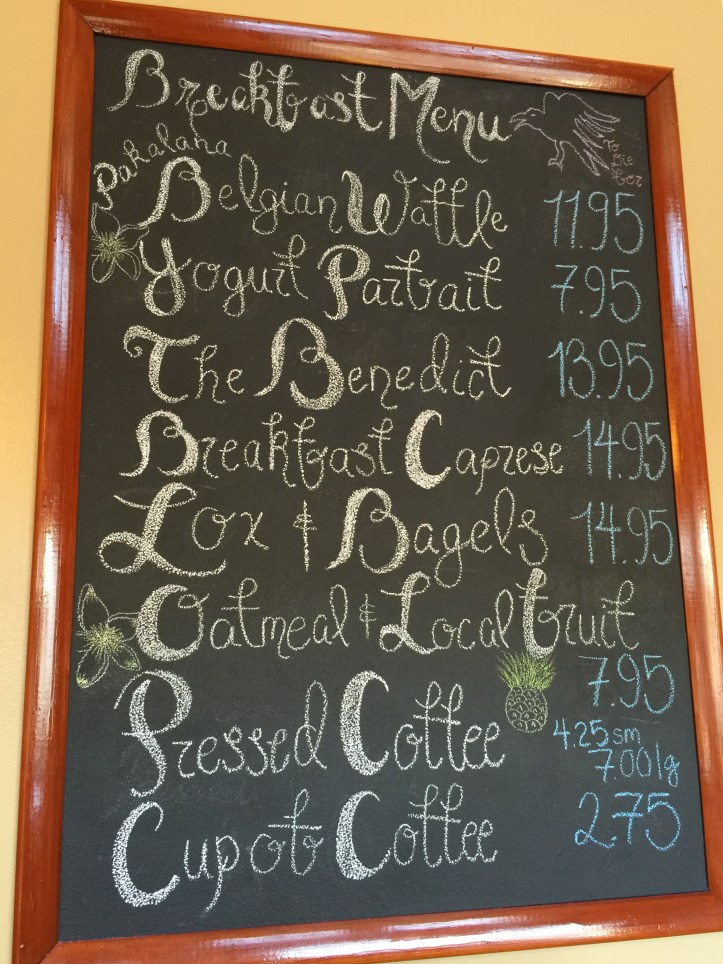 Breakfast Menu
To
Die
For
Pakalana
Belgian Waffle 11.95
Yogurt Parfait 7.95
The Benedict 13.95
Breakfast Caprese 14.95
Lox & Bagels 14.95
Oatmeal & Local fruit
7.95
Pressed Coffee 4.25 sm
7.00 lg
Cup of Coffee 2.75